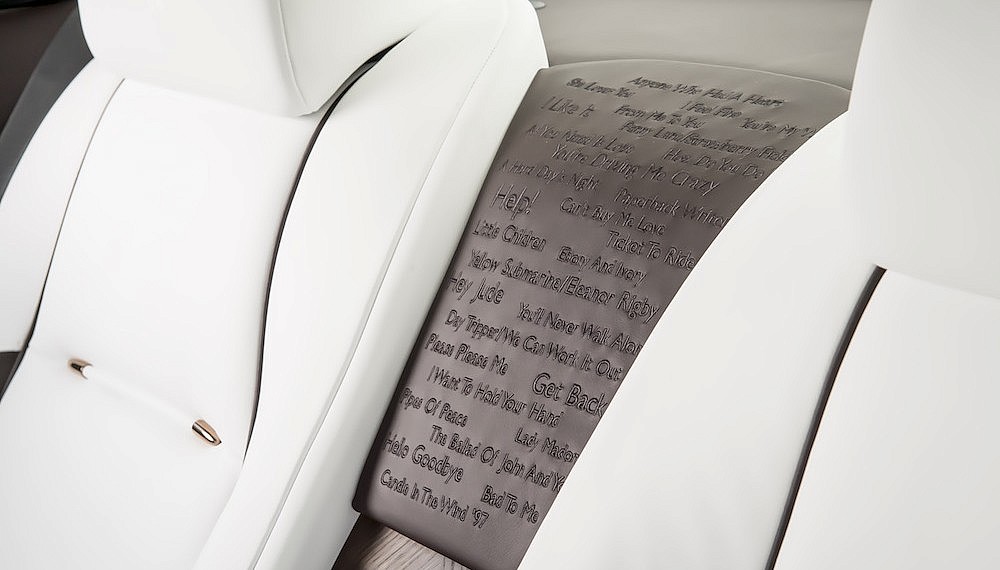 Anyone Who Had A Heart
She Loves You I Feel Fine You're My
I Like It From Me To You
Penny Lane/Strawberry
All You Need Is Love How Do You Do
You're Driving Me Crazy
A Hard Day's Night Paperback Writer
Help! Can't Buy Me Love
Little Children Ticket To Ride
Ebony And Ivory
Yellow Submarine/Eleanor Rigby
Hey Jude You'll Never Walk
Day Tripper/We Can Work It Out
Please Please Me Get Back
I Want To Hold Your Hand
Pipes Of Peace Lady
The Ballad Of John And
Hello Goodbye Bad To Me
Candle In The Wind '97